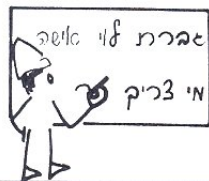 גברת לוי אישה
מי צריך